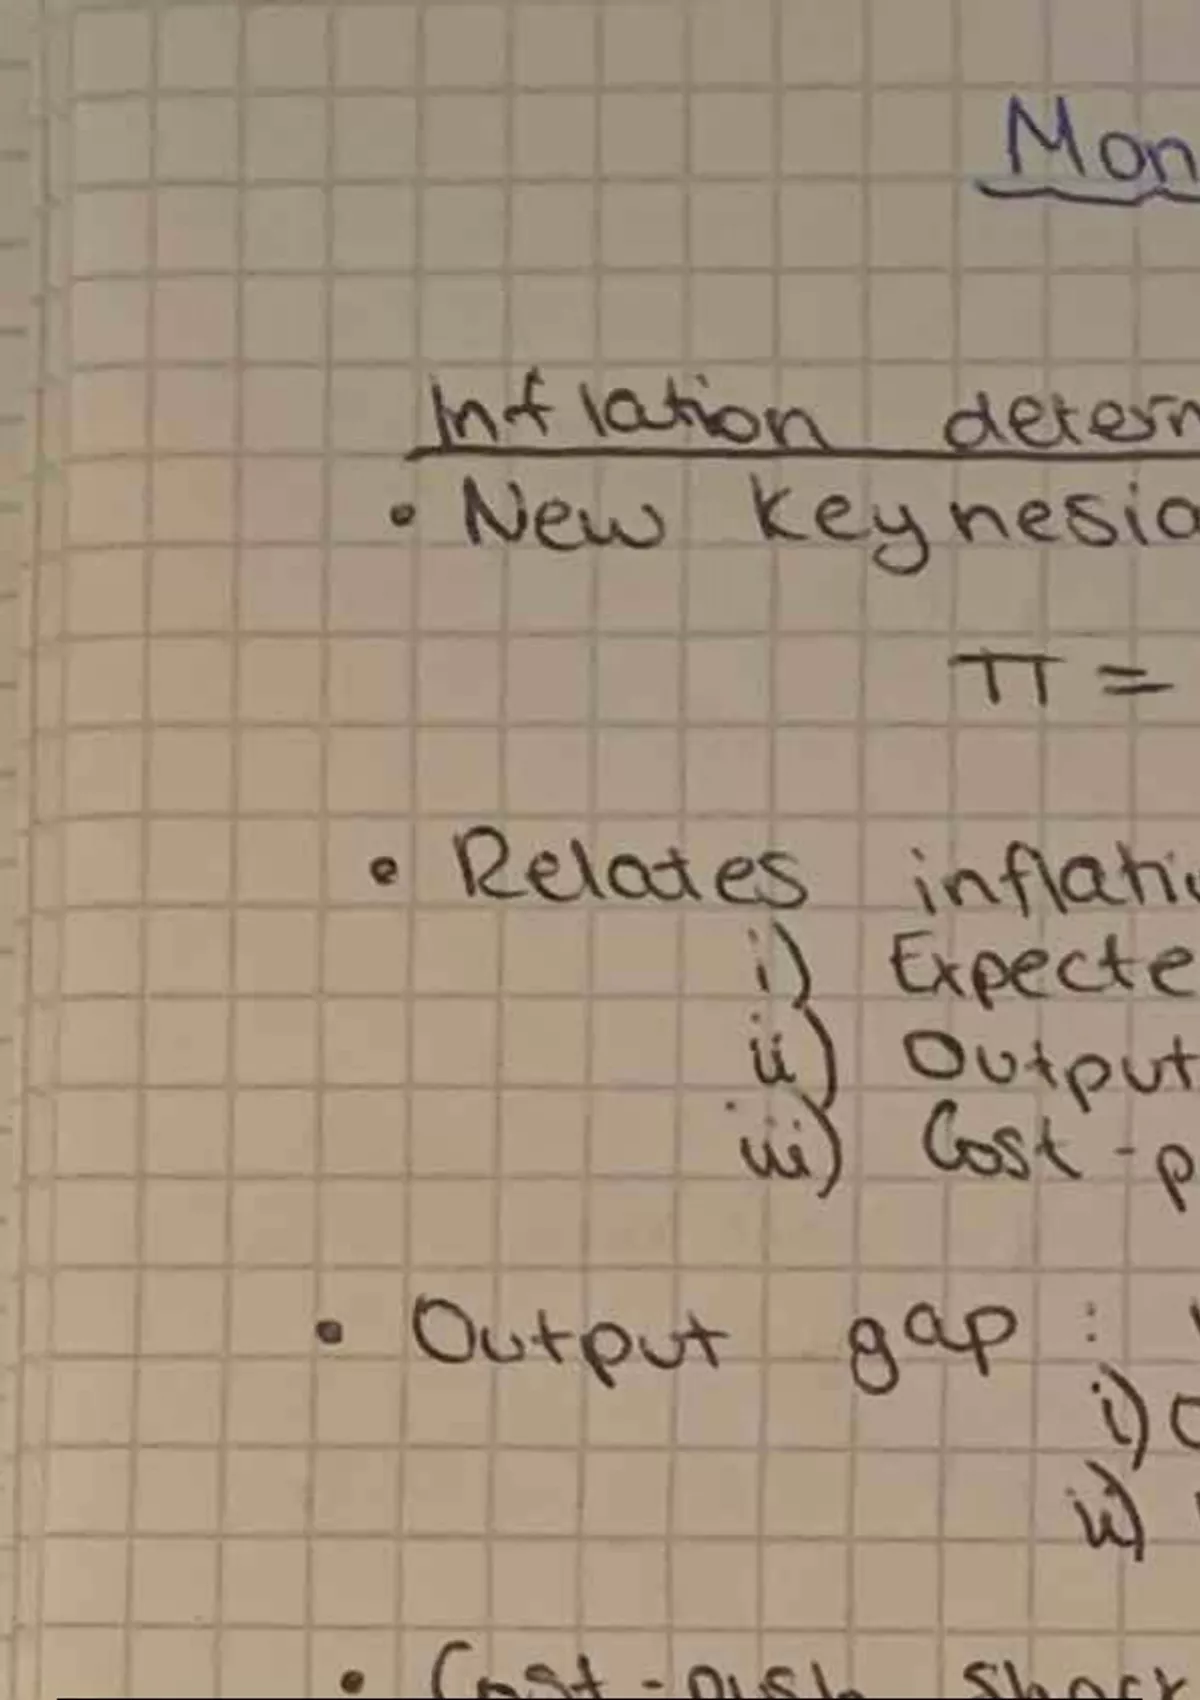 Mon
Inflation determ
• New Keynesia
π =
• Relates inflati
i) Expecte
ii) Output
iii) Cost-p
• Output gap :
i)
ii)
• Cost-push shock